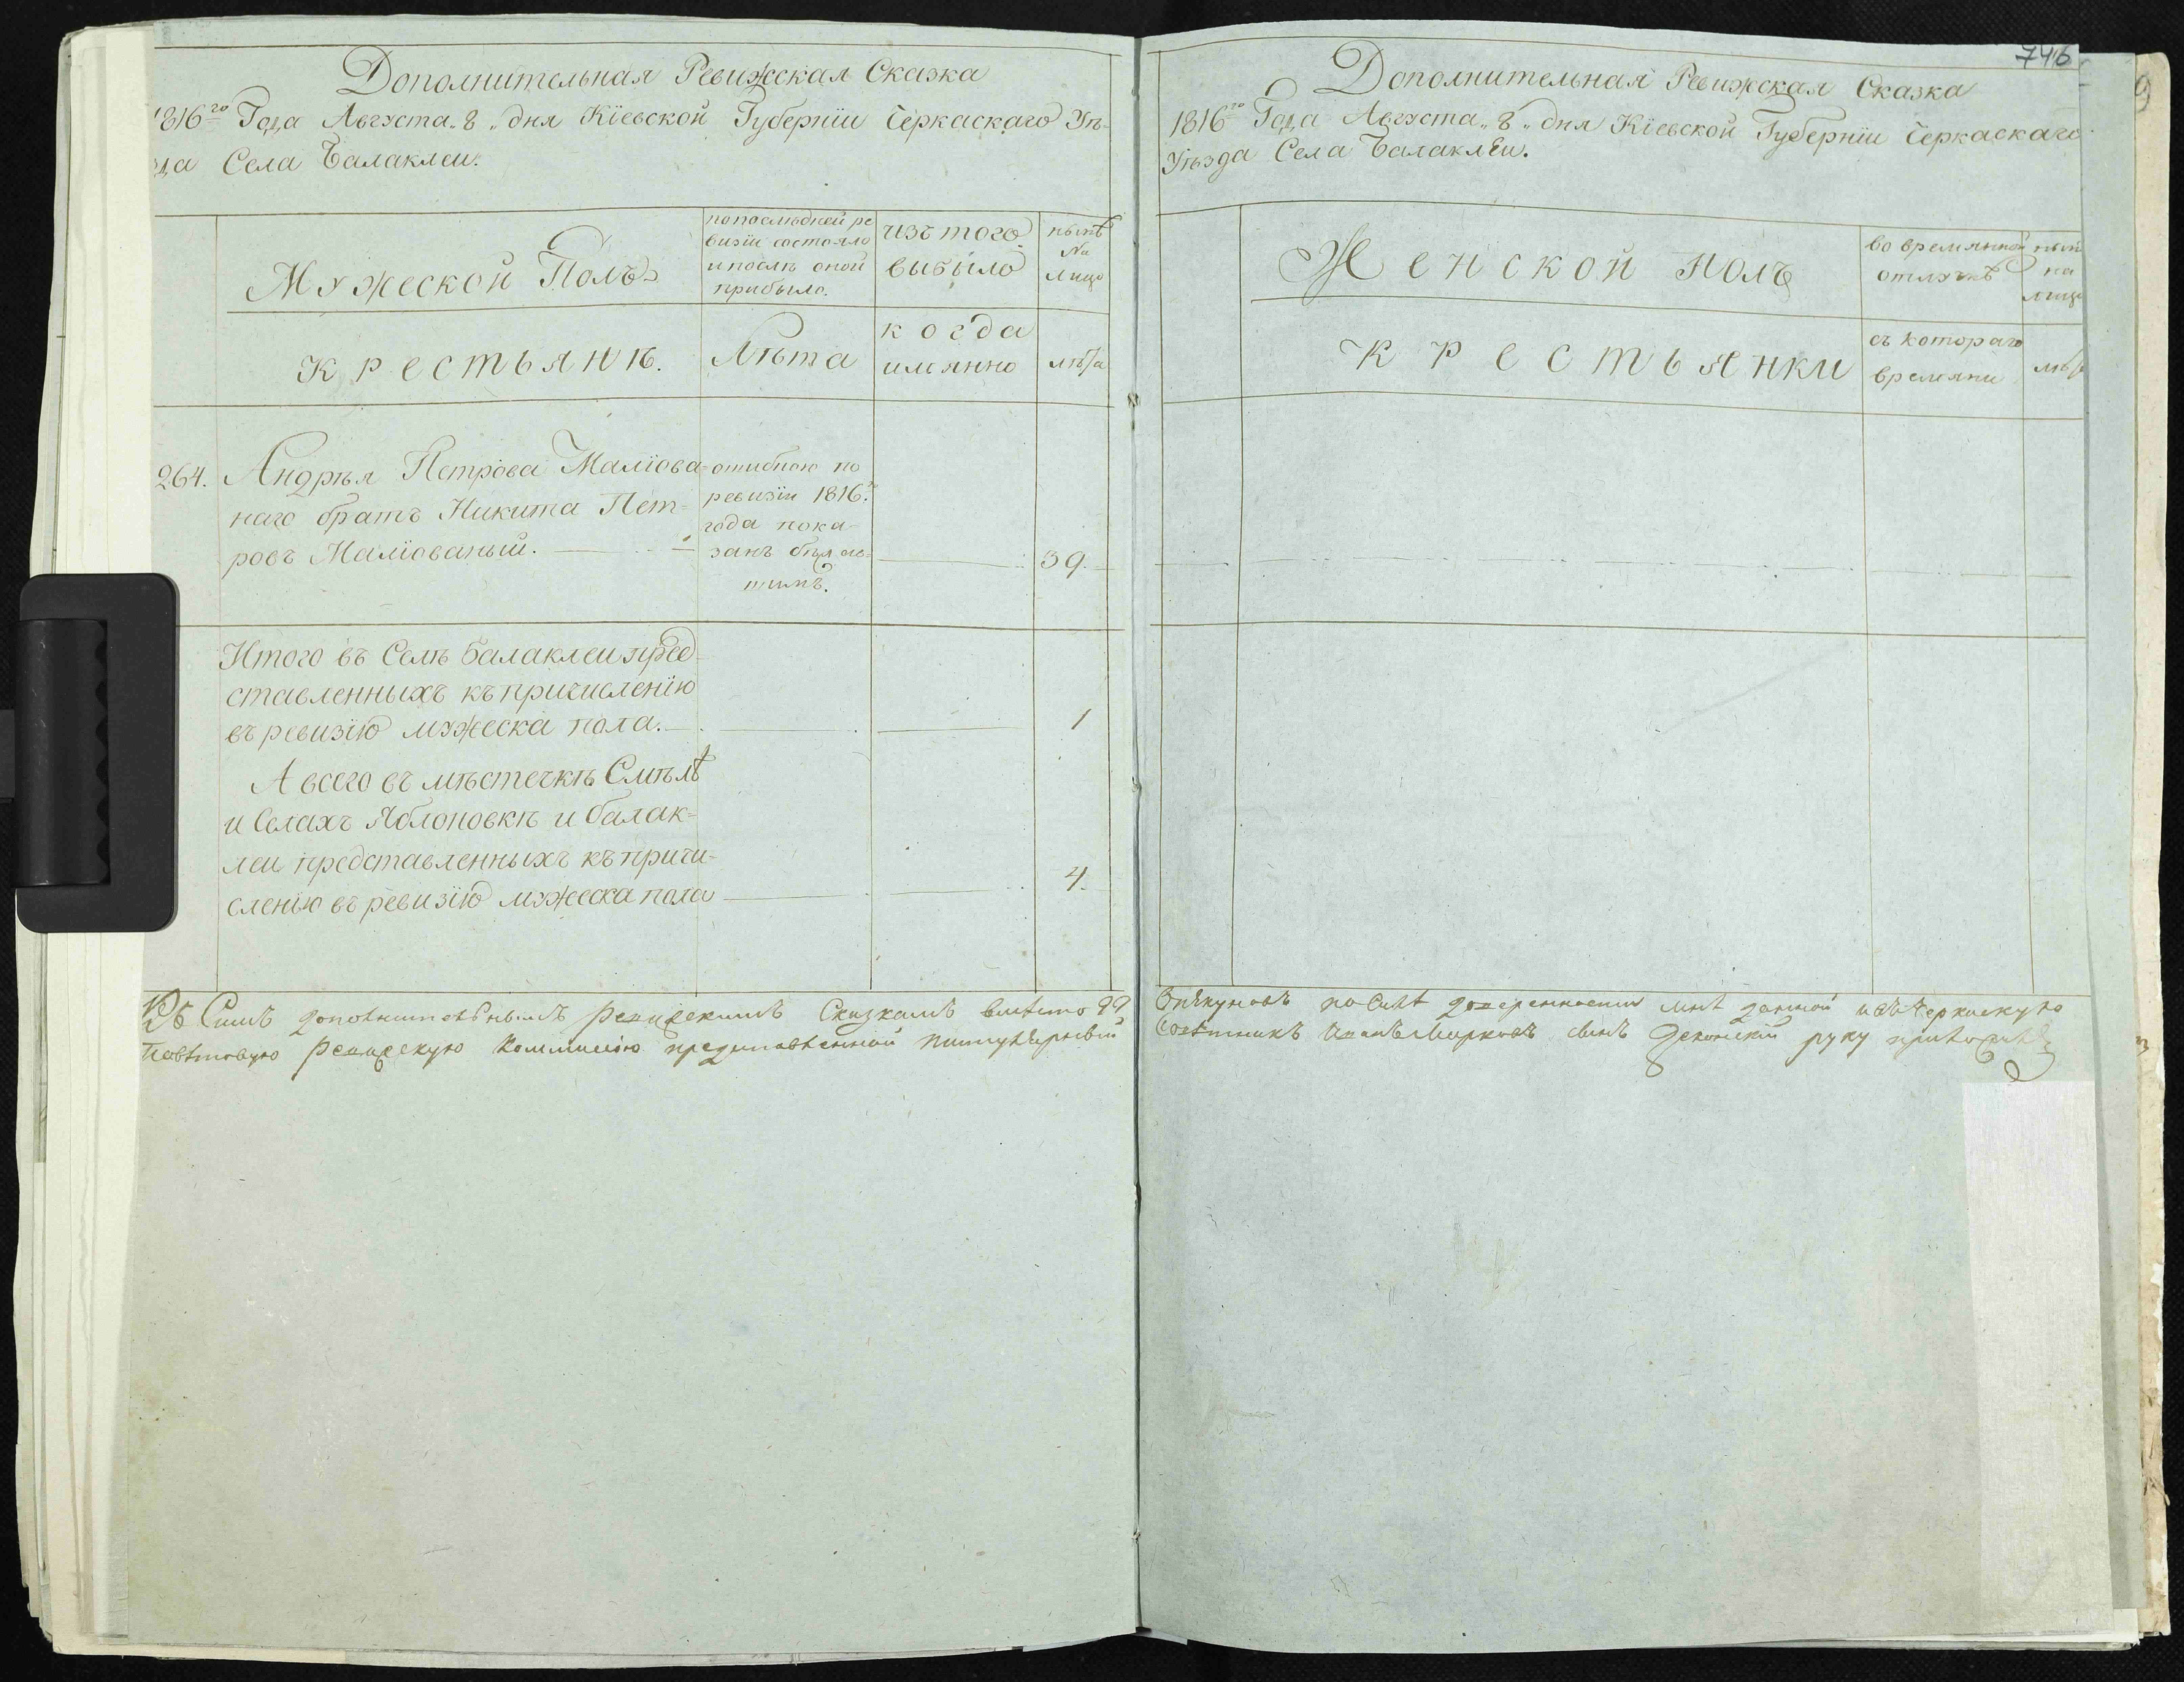 Дополнительная Ревижская Сказка
1816го Года Августа „8„ дня Кіевской Губерніи Черкаскаго Уѣ-
да Села Балаклеи.
Мужеской Полъ
попослѣдней ре
визіи состояло
и послѣ оной
прибыло.
изъ того
выбыло
нынѣ
На
лицо
Крестьянѣ.
Лѣта
когда
имянно
лѣта
264.
Андрѣя Петрова Маліова-
наго братъ Никита Пет-
ровъ Маліованый.
ошибкою по
ревизіи 1816го
года пока
занъ былъ
39.
Итого въ Селѣ Балаклеи пред-
ставленныхъ къ причисленію
въ ревизію мужеска пола.
1
А всего въ мѣстечкѣ Смѣлѣ
и Селахъ Яблоновкѣ и Балак-
леи представленныхъ къ причи-
сленію въ ревизію мужеска пола
4.
Къ Симъ дополнительнымъ Ревизскимъ Сказкамъ вмѣсто
Повѣтовую Ревизскую Коммисію представленной
746
Дополнительная Ревижская Сказка
1816го Года Августа „8„ дня Кіевской Губерніи Черкаскаго
Уѣзда Села Балаклеи.
Женской Полъ
во времянной
отлучкѣ
нынѣ
на
лицо
Крестьянки
съ котораго
времяни
лѣта
Опѣкуновъ по Силѣ доверенности мнѣ данной въ Черкаскую
Совѣтникъ Иванъ Марковъ Сынъ руку приложилъ